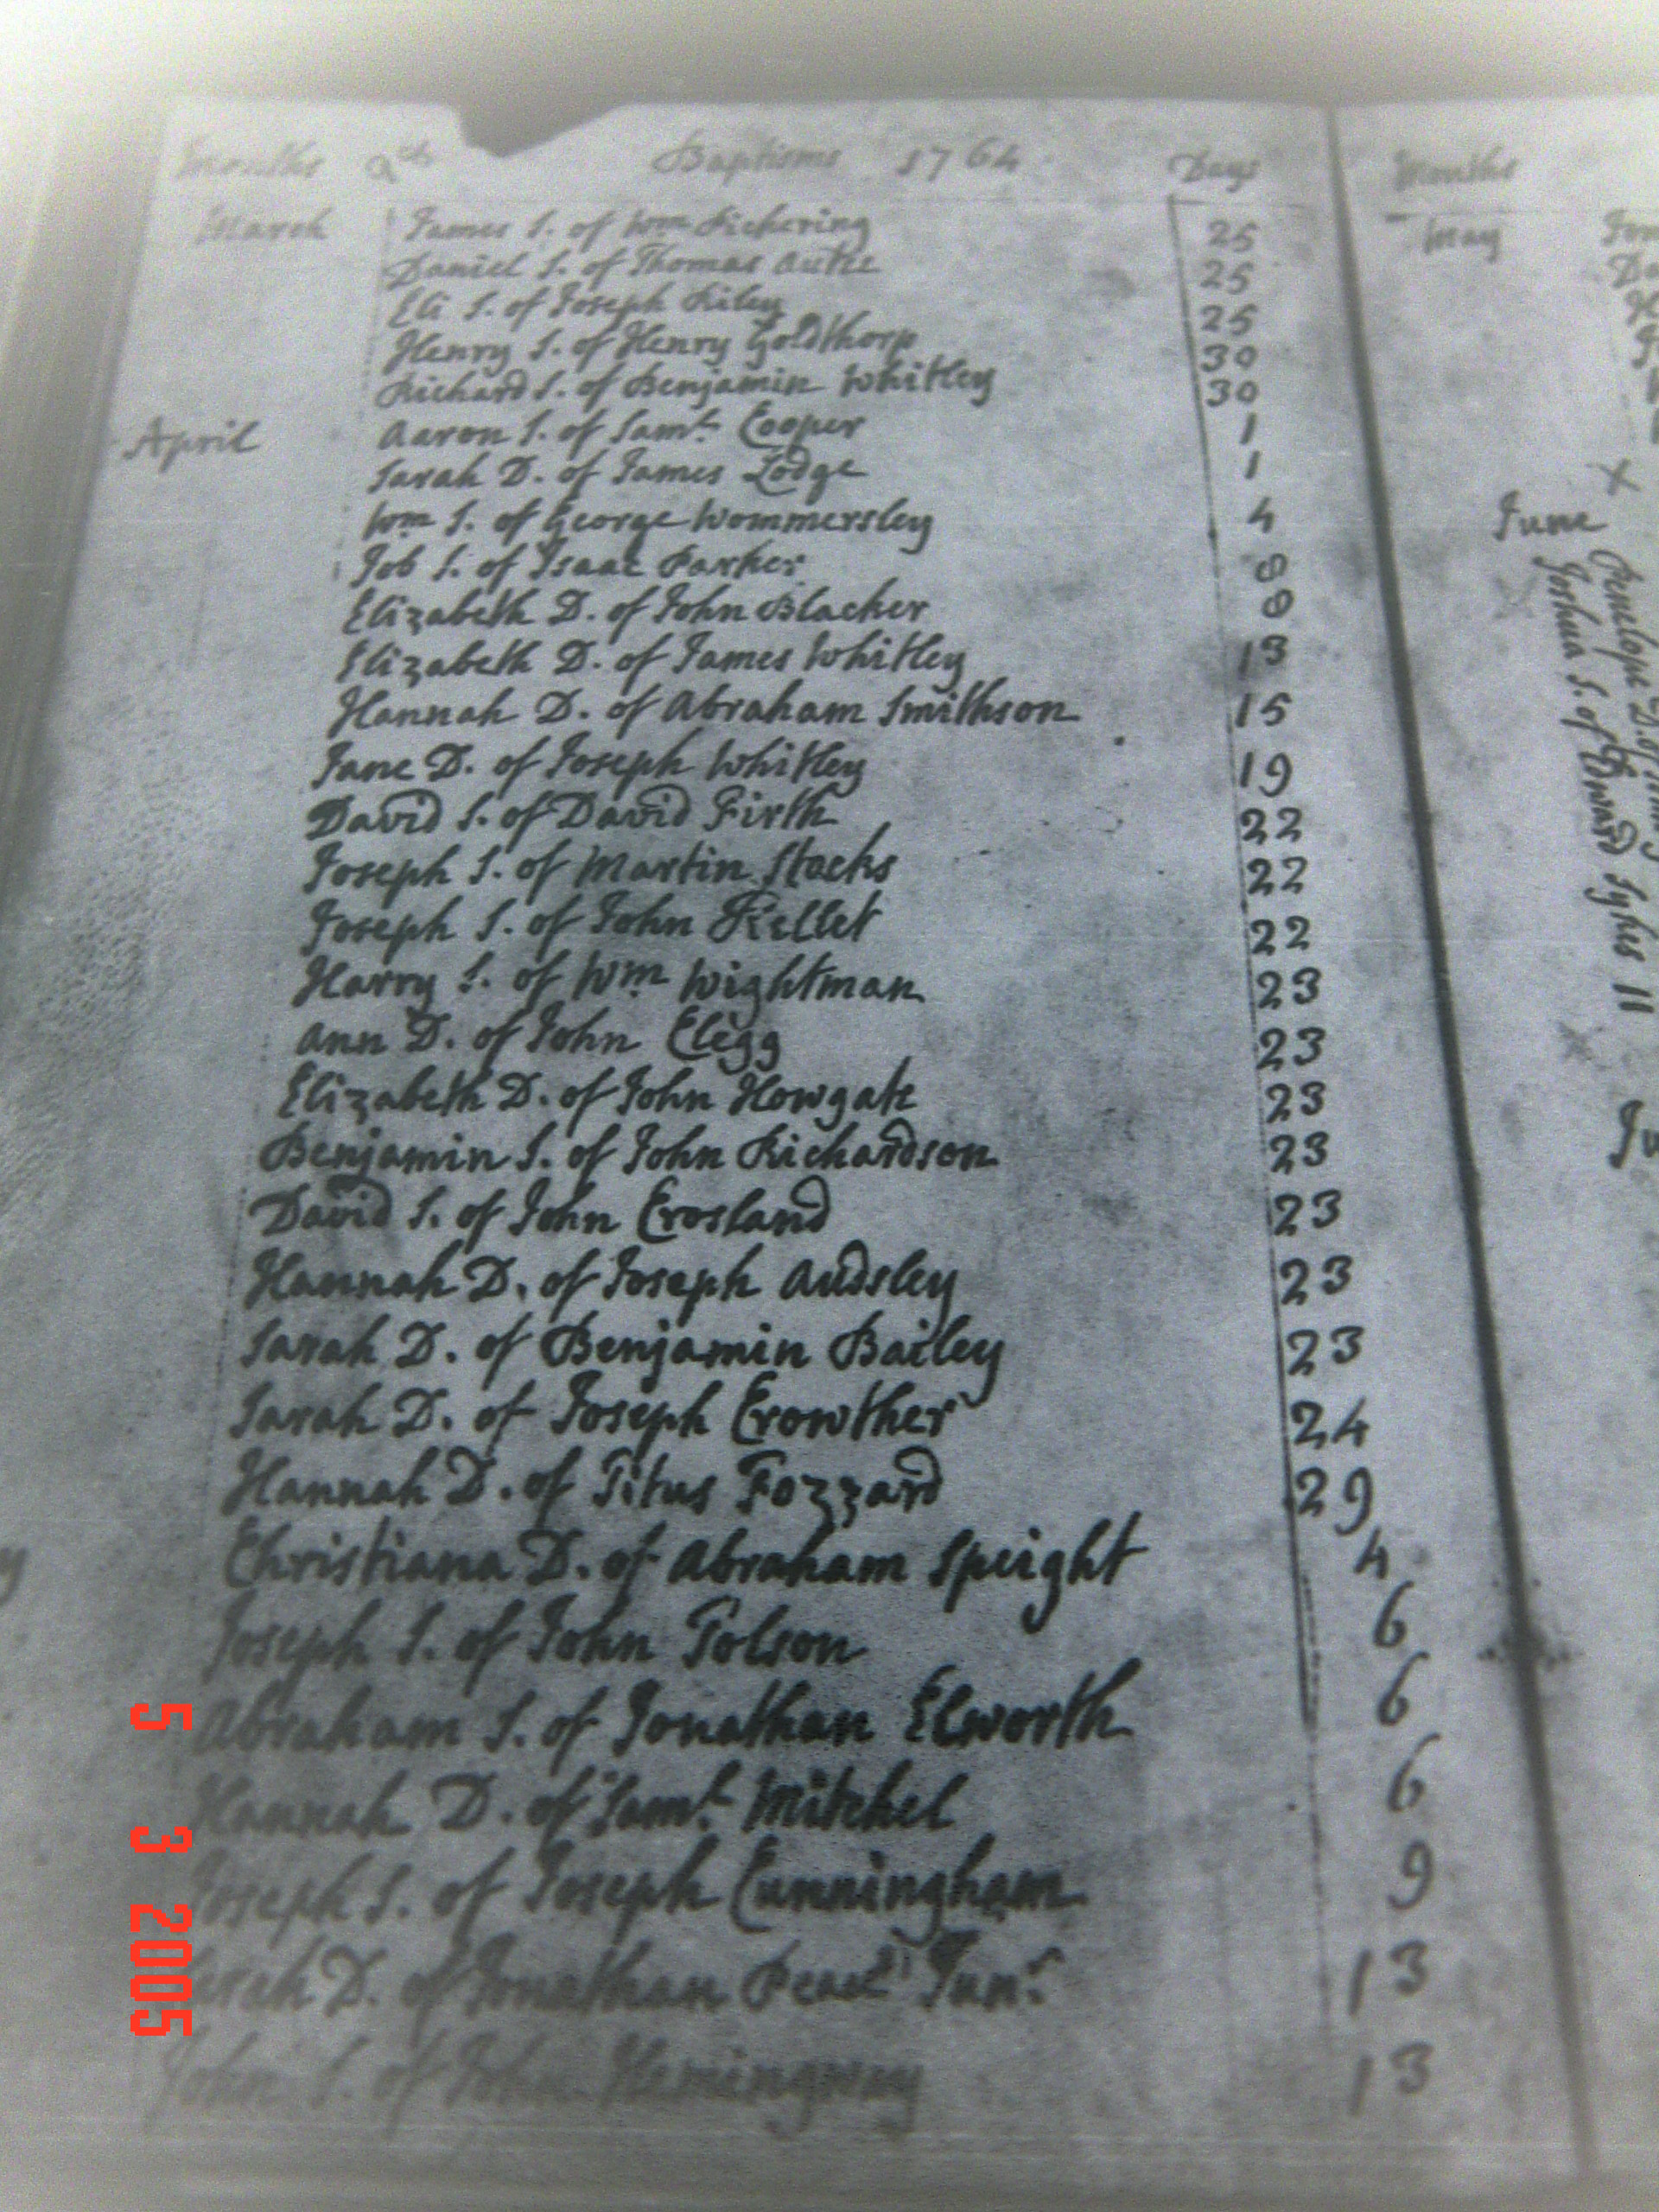 Months Baptisms 1764 Days
March James S. of Wm Pickering 25
Daniel S. of Thomas Autie 25
Eli S. of Joseph Riley 25
Henry S. of Henry Goldthorp 30
Richard S. of Benjamin Whitley 30
April Aaron S. of Saml. Cooper 1
Sarah D. of James Lodge 1
Wm S. of George Wommersley 4
Job S. of Isaac Parker 8
Elizabeth D. of John Blacker 8
Elizabeth D. of James Whitley 13
Hannah D. of Abraham Smithson 15
Jane D. of Joseph Whitley 19
David S. of David Firth 22
Joseph S. of Martin Stocks 22
Joseph S. of John Kellet 22
Harry S. of Wm Wightman 23
Ann D. of John Clegg 23
Elizabeth D. of John Howgate 23
Benjamin S. of John Richardson 23
David S. of John Crosland 23
Hannah D. of Joseph Audsley 23
Sarah D. of Benjamin Bailey 23
Sarah D. of Joseph Crowther 24
Hannah D. of Titus Fozzard 29
Christiana D. of Abraham Speight 4
Joseph S. of John Tolson 6
Abraham S. of Jonathan Elworth 6
Hannah D. of Saml. Mitchel 6
Joseph S. of Joseph Cunningham 9
D. of Jonathan Junr. 13
John S. of John Hemingway 13
Months
May
June
Penelope D. of
Joshua S. of Edward Sykes 11
5 3 2005